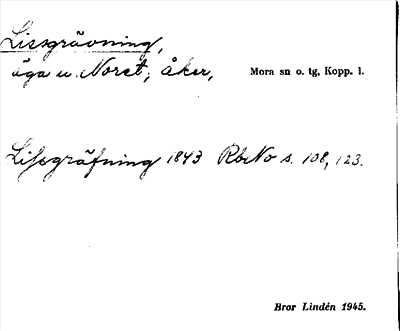 Lissgrävning,
äga u. Noret, åker, Mora sn o. tg, Kopp. l.
Lissgräfning 1843 RbNo s. 108, 123.
Bror Lindén 1945.